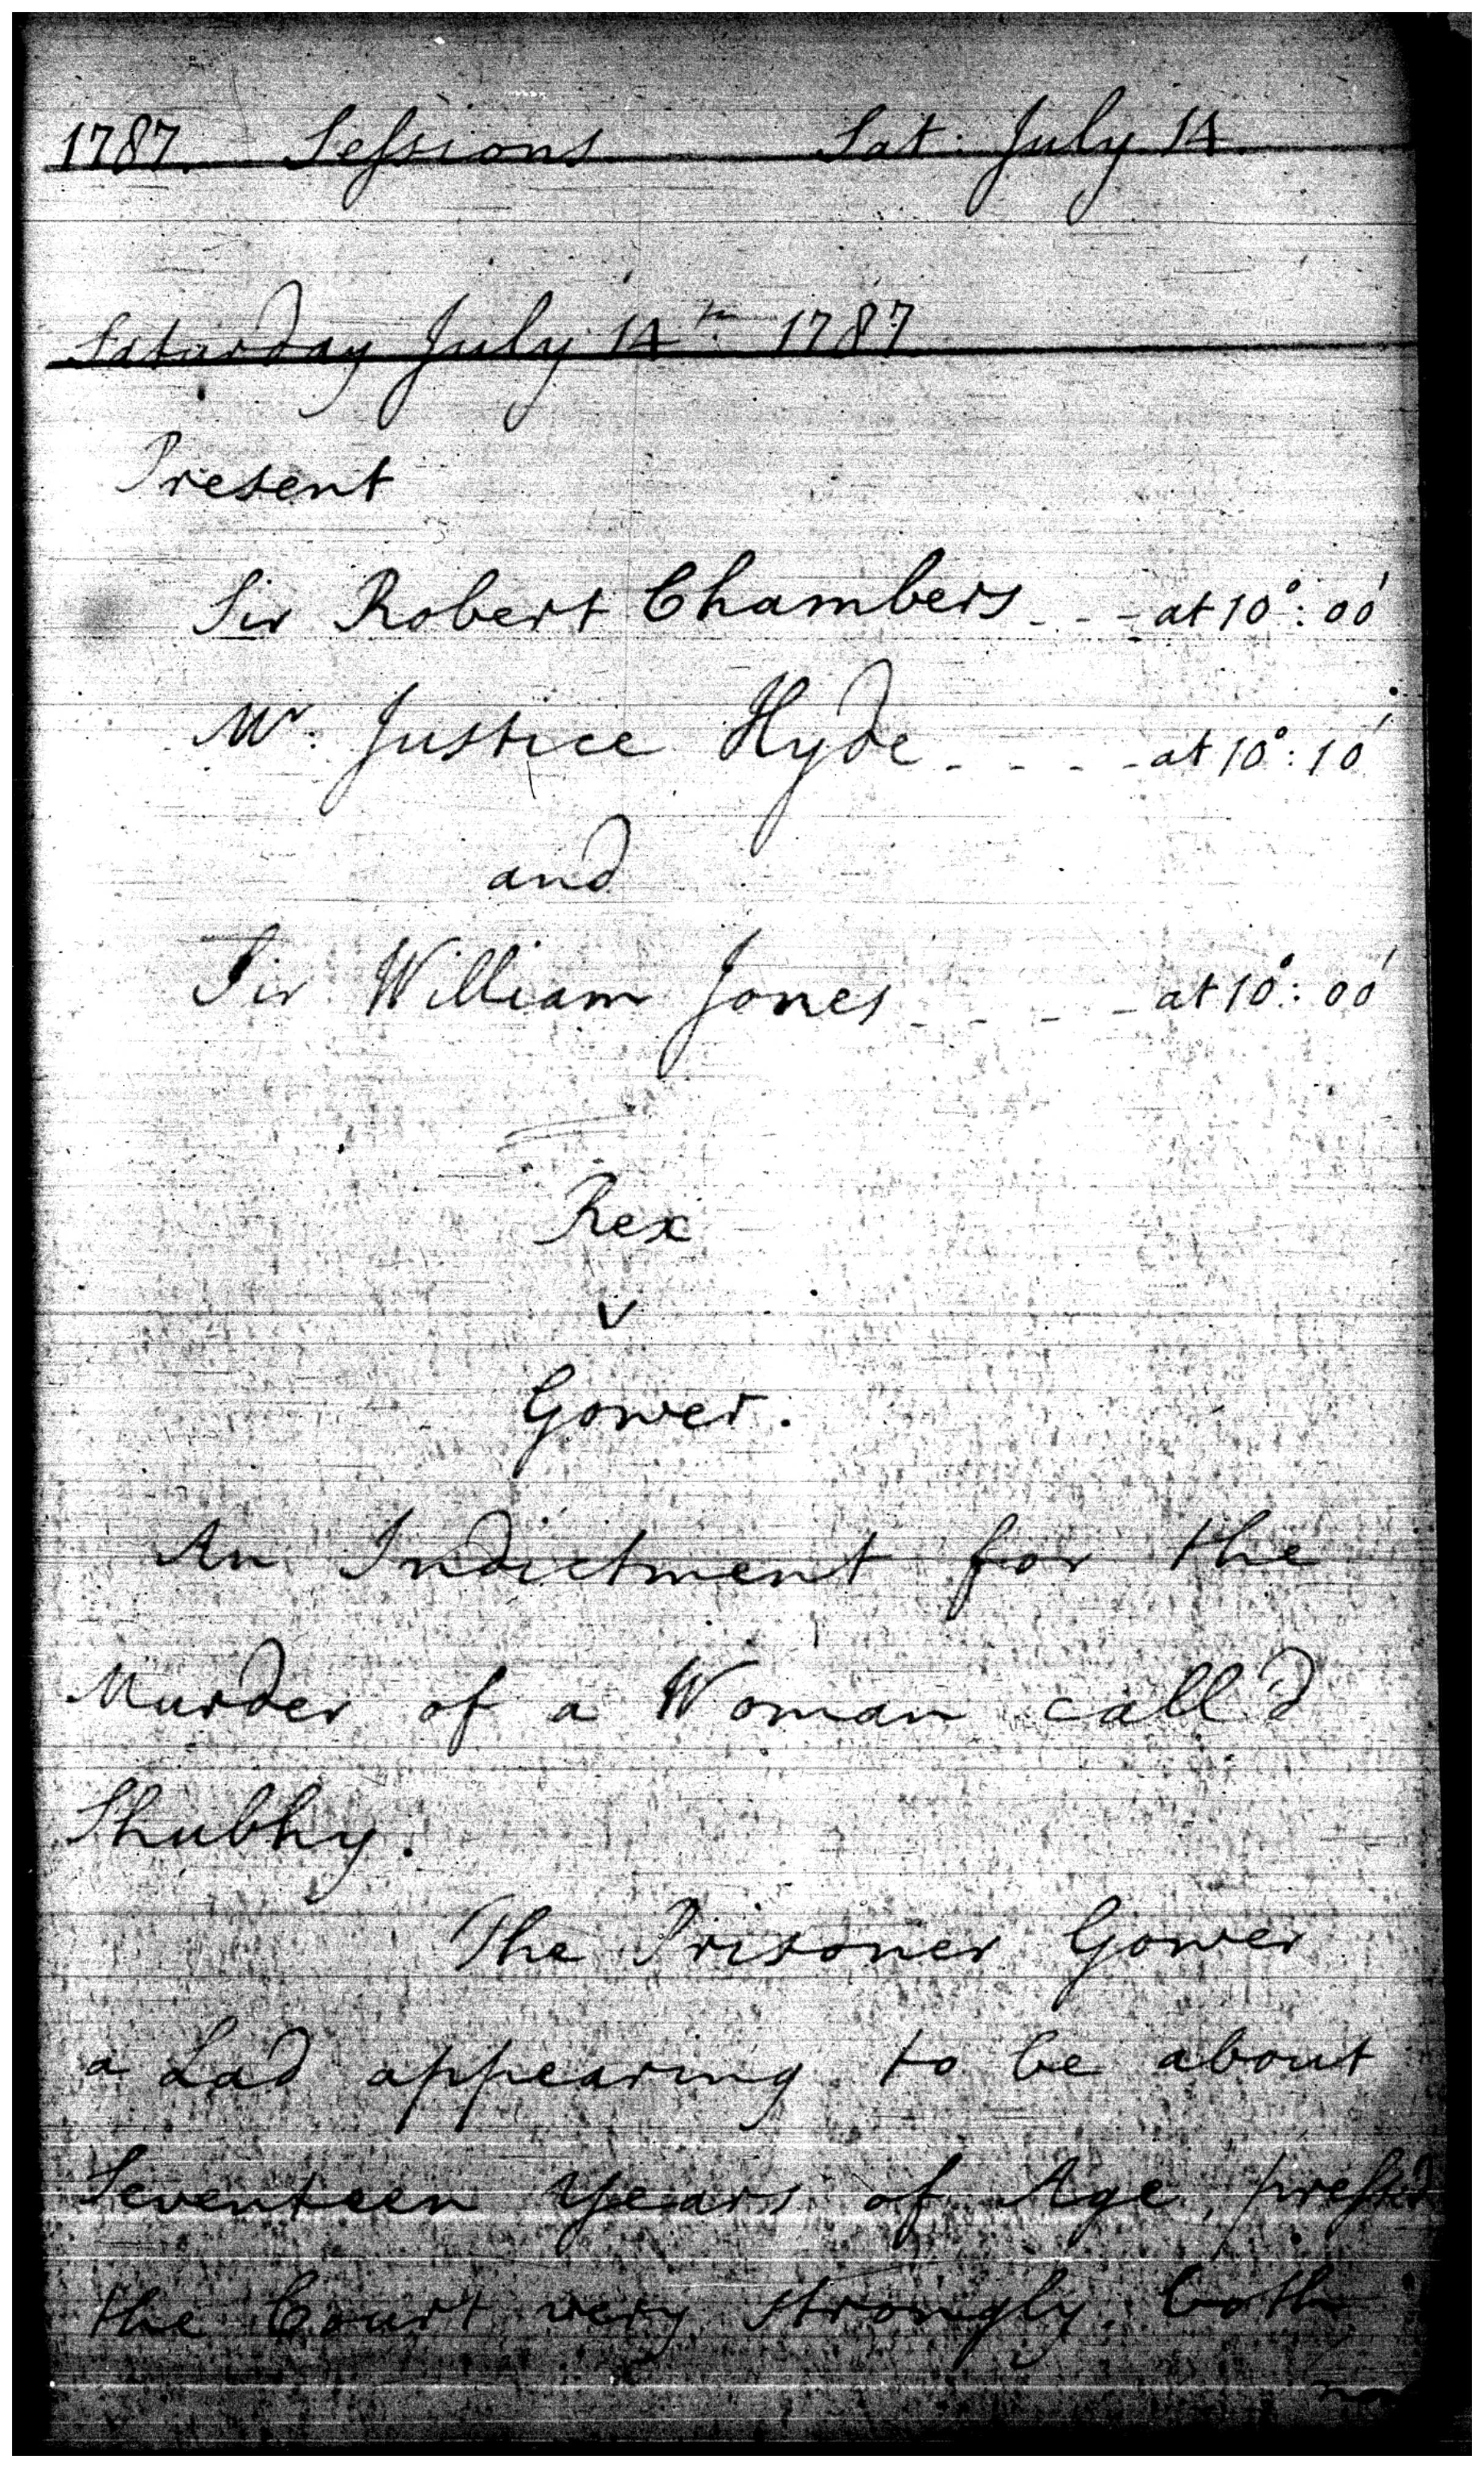 1787 Sessions Sat: July 14
Saturday July 14th 1787
Present
Sir Robert Chambers - - - at 10°: 00'
Mr. Justice Hyde - - - - at 10°: 10'
and
Sir William Jones - - - - at 10°: 00'
Rex
v
Gower.
An Indictment for the
Murder of a Woman call'd
Shubhy.
The Prisoner Gower
a Lad appearing to be about
Seventeen Years of Age, press'd
the Court very strongly, both
now